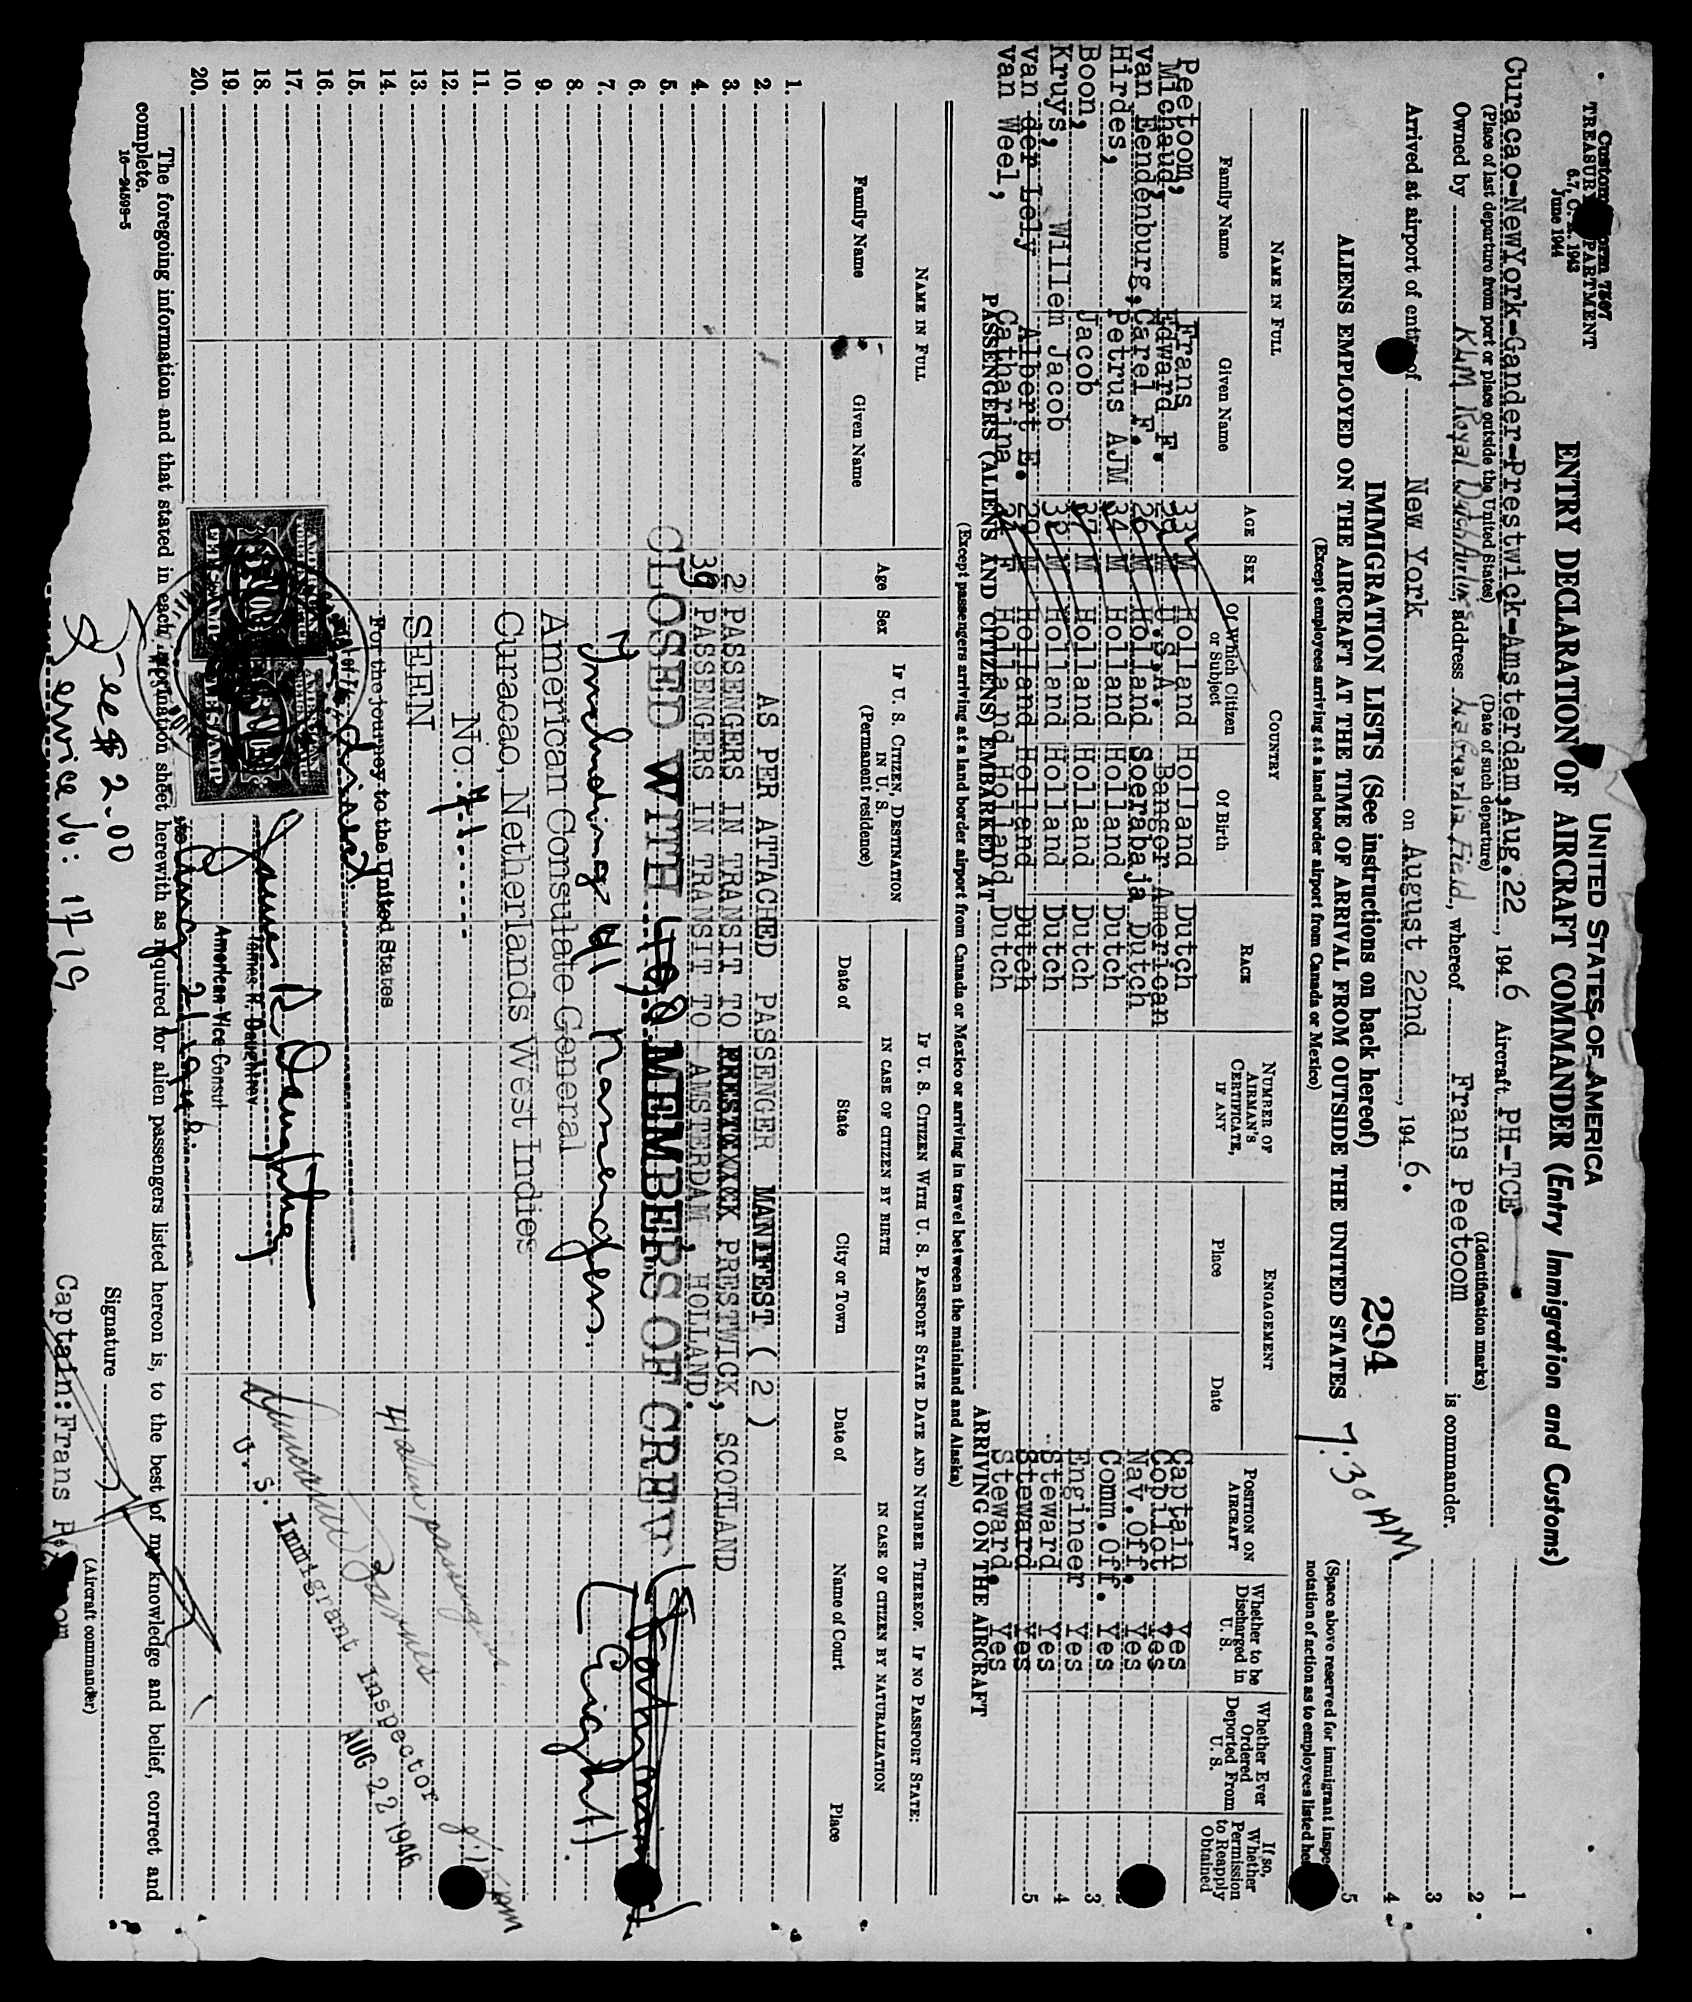 Customs Form 7507
TREASURY DEPARTMENT
1943
June 1944
UNITED STATES OF AMERICA
ENTRY DECLARATION OF AIRCRAFT COMMANDER (Entry Immigration and Customs)
Curacao-NewYork-Gander-Prestwick-Amsterdam,Aug.22, 1946 Aircraft PH-TCE
(Place of last departure from port or place outside the United States) (Date of such departure) (Identification marks)
Owned by KLM Royal Dutch Airlines, address La Guardia Field, whereof Frans Peetoom is commander.
Arrived at airport of entry of New York on August 22nd, 1946.
IMMIGRATION LISTS (See instructions on back hereof)
294
7:30 AM
ALIENS EMPLOYED ON THE AIRCRAFT AT THE TIME OF ARRIVAL FROM OUTSIDE THE UNITED STATES
(Except employees arriving at a land border airport from Canada or Mexico)
1
2
3
4
5
(Space above reserved for immigrant
notation of action as to employees listed
NAME IN FULL AGE SEX COUNTRY RACE NUMBER OF AIRMAN'S CERTIFICATE, IF ANY ENGAGEMENT POSITION ON AIRCRAFT Whether to be Discharged in U. S. Whether Ever Ordered Deported From U. S. If so, Whether Permission to Reapply Obtained
Family Name Given Name Of Which Citizen or Subject Of Birth Place Date
Peetoom, Frans 33 M Holland Holland Dutch Captain Yes
Michaud, Edward F. M U.S.A. Bangor American Copilot Yes
van Eendenburg, Carel F. 26 M Holland Soerabaja Dutch Nav.Off. Yes
Hirdes, Petrus AJM 34 M Holland Holland Dutch Comm.Off. Yes
Boon, Jacob 37 M Holland Holland Dutch Engineer Yes
Kruys, Willem Jacob M Holland Holland Dutch Steward Yes
van der Lely Albert E. 29 M Holland Holland Dutch Steward Yes
van Weel, Catharina F Holland Holland Dutch Steward. Yes
3
4
5
PASSENGERS (ALIENS AND CITIZENS) EMBARKED AT ARRIVING ON THE AIRCRAFT
(Except passengers arriving at a land border airport from Canada or Mexico or arriving in travel between the mainland and Alaska)
NAME IN FULL Age Sex IF U. S. CITIZEN, DESTINATION IN U. S. (Permanent residence) IF U. S. CITIZEN WITH U. S. PASSPORT STATE DATE AND NUMBER THEREOF. IF NO PASSPORT STATE:
IN CASE OF CITIZEN BY BIRTH IN CASE OF CITIZEN BY NATURALIZATION
Family Name Given Name Date of State City or Town Date of Name of Court Place
1.
2. AS PER ATTACHED PASSENGER MANIFEST (2)
3. 2 PASSENGERS IN TRANSIT TO PRESTWICK, SCOTLAND
4. 39 PASSENGERS IN TRANSIT TO AMSTERDAM, HOLLAND.
5. CLOSED WITH MEMBERS OF CREW
6. (Eight).
7. Including 41 passengers.
8.
9. American Consulate General
10. Curacao, Netherlands West Indies
11.
12. No.
13. SEEN
14. For the journey to the United States
15.
16.
17.
18. James R. Daughtrey
19. American Vice Consul
20. Aug 21, 1946.
41 alien passengers
U. S. Immigrant Inspector
AUG 22 1946
AMERICAN FOREIGN SERVICE
FEE STAMP
The foregoing information and that stated in each information sheet herewith as required for alien passengers listed hereon is, to the best of my knowledge and belief, correct and
complete.
16—24599-5
Fee $ 2.00
Service No: 1719
Signature
(Aircraft commander)
Captain: Frans Peetoom